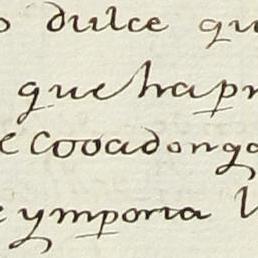 o dulce qu
que hapr
e Cooadonga
e ymporta